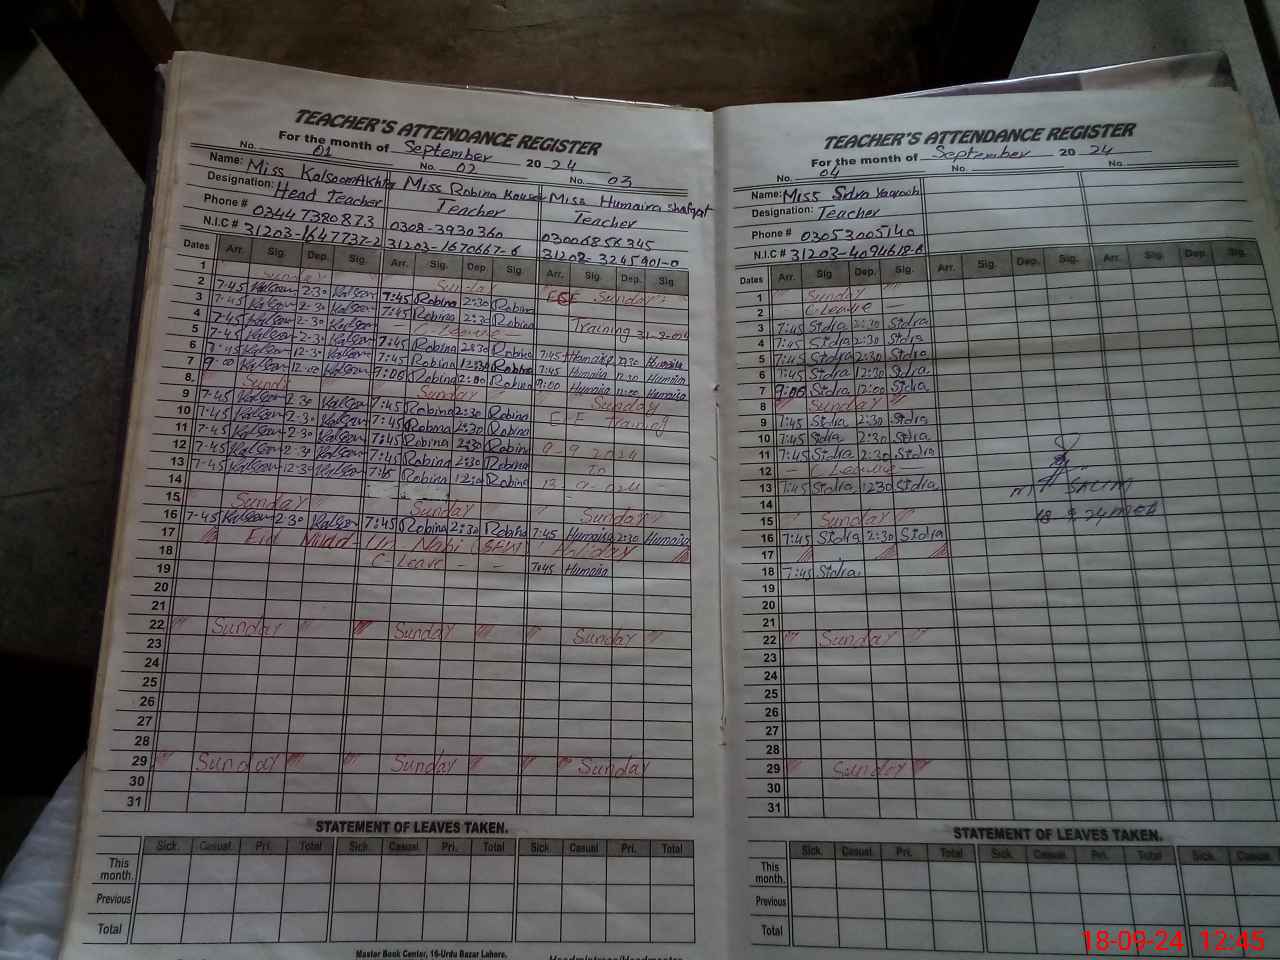 TEACHER'S ATTENDANCE REGISTER
For the month of September 2024
No. 01 No. 02 No. 03
Name: Miss Kalsoom Akhtar Miss Robina Kousar Miss Humaira Shafqat
Designation: Head Teacher Teacher Teacher
Phone # 03447380873 0308-3930360 03006856345
N.I.C # 31203-1647737-2 31203-1670667-6 31202-3245901-0
Dates Arr. Sig. Dep. Sig. Arr. Sig. Dep. Sig. Arr. Sig. Dep. Sig.
1 Sunday Sunday Sunday
2 7:45 Kalsoom 2:30 Kalsoom 7:45 Robina 2:30 Robina
3 7:45 Kalsoom 2:30 Kalsoom 7:45 Robina 2:30 Robina Training
4 7:45 Kalsoom 2:30 Kalsoom C-Leave
5 7:45 Kalsoom 2:30 Kalsoom 7:45 Robina 2:30 Robina 7:45 Humaira 2:30 Humaira
6 7:45 Kalsoom 12:30 Kalsoom 7:45 Robina 12:30 Robina 7:45 Humaira 12:30 Humaira
7 9:00 Kalsoom 12:00 Kalsoom 9:00 Robina 12:00 Robina 9:00 Humaira 12:00 Humaira
8 Sunday Sunday Sunday
9 7:45 Kalsoom 2:30 Kalsoom 7:45 Robina 2:30 Robina Training
10 7:45 Kalsoom 2:30 Kalsoom 7:45 Robina 2:30 Robina
11 7:45 Kalsoom 2:30 Kalsoom 7:45 Robina 2:30 Robina 9-9-2024
12 7:45 Kalsoom 2:30 Kalsoom 7:45 Robina 2:30 Robina To
13 7:45 Kalsoom 12:30 Kalsoom 7:45 Robina 12:30 Robina
14
15 Sunday Sunday Sunday
16 7:45 Kalsoom 2:30 Kalsoom 7:45 Robina 2:30 Robina 7:45 Humaira 2:30 Humaira
17 Eid Milad Un Nabi Holiday
18 C-Leave 7:45 Humaira
19
20
21
22 Sunday Sunday Sunday
23
24
25
26
27
28
29 Sunday Sunday Sunday
30
31
STATEMENT OF LEAVES TAKEN.
Sick. Casual. Pri. Total Sick. Casual. Pri. Total Sick. Casual. Pri. Total
This month.
Previous
Total
Master Book Center, 16-Urdu Bazar Lahore.
Headmistress/Headmaster
TEACHER'S ATTENDANCE REGISTER
For the month of September 2024
No. 04 No. No.
Name: Miss Sidra Yaqoob
Designation: Teacher
Phone # 03053005140
N.I.C # 31203-4094618-6
Dates Arr. Sig. Dep. Sig. Arr. Sig. Dep. Sig. Arr. Sig. Dep. Sig.
1 Sunday
2 C.Leave
3 7:45 Sidra 2:30 Sidra
4 7:45 Sidra 2:30 Sidra
5 7:45 Sidra 2:30 Sidra
6 7:45 Sidra 12:30 Sidra
7 9:00 Sidra 12:00 Sidra
8 Sunday
9 7:45 Sidra 2:30 Sidra
10 7:45 Sidra 2:30 Sidra
11 7:45 Sidra 2:30 Sidra
12 C Leave
13 7:45 Sidra 12:30 Sidra
14
15 Sunday
16 7:45 Sidra 2:30 Sidra
17
18 7:45 Sidra
19
20
21
22 Sunday
23
24
25
26
27
28
29 Sunday
30
31
STATEMENT OF LEAVES TAKEN.
Sick. Casual. Pri. Total Sick. Casual. Pri. Total Sick. Casual.
This month.
Previous
Total
18-09-24 12:45